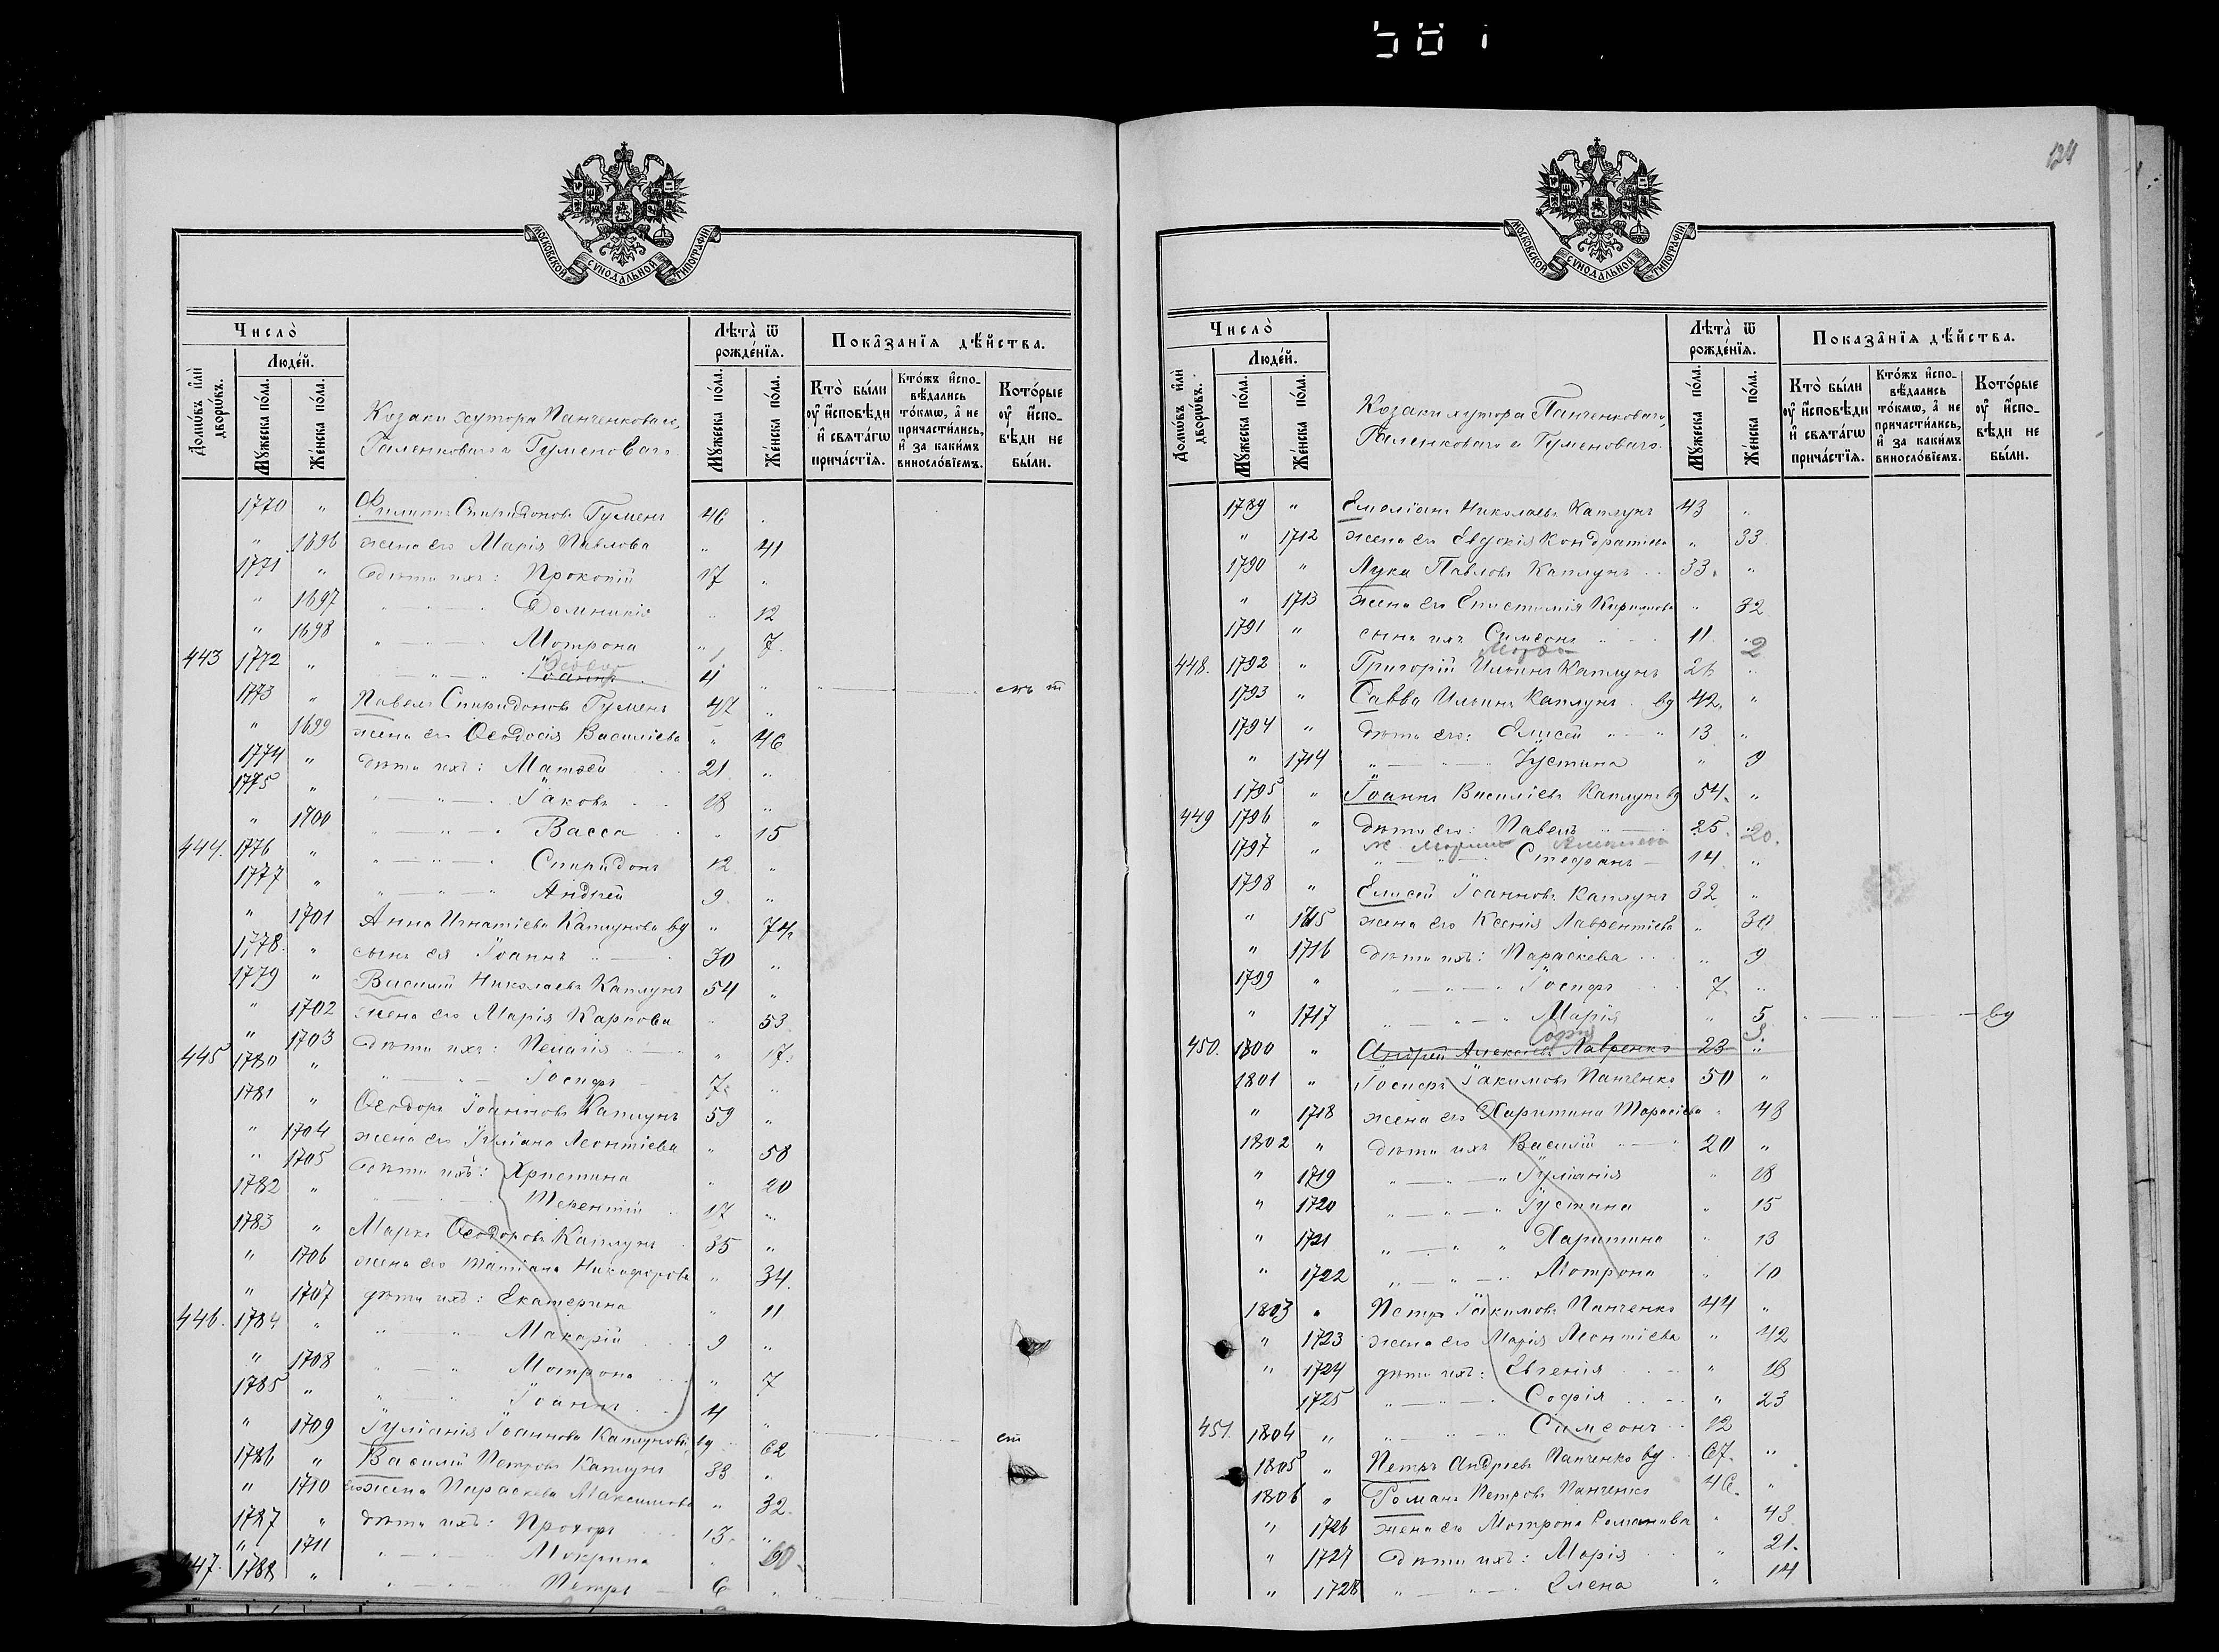 581
МОСКОВСКОЙ СѴНОДАЛЬНОЙ ТИПОГРАФІИ
Число̀
Людей.
Домѡвъ и҆лѝ дворѡвъ.
Мꙋжеска по́ла.
Же́нска по́ла.
Лѣта̀ ѿ рожде́нїѧ.
Мꙋжеска по́ла.
Же́нска по́ла.
Показа̑нїѧ дѣ́йства.
Кто̀ бы́ли ᲂу҆ и҆сповѣди и҆ свѧта́гѡ прича́стїѧ.
Кто́жъ и҆сповѣдались то́кмѡ, а҆ не причасти́лись, и҆ за каки́мъ виносло́вїемъ.
Кото́рые ᲂу҆ и҆сповѣди не бы́ли.
Козаки хутора Панченковаго,
Галенковаго и Гуменоваго.
1770 " Филиппъ Спиридоновъ Гуменъ 46 .
" 1696 жена его Марія Павлова " 41
1771 " дѣти ихъ: Прокопій 17 "
" 1697 " — " — Домникія " 12
" 1698 " — " — Мотрона " 7.
443 1772 " " — " — Іоаннъ 4 "
1773 " Павелъ Спиридоновъ Гуменъ 47 "
" 1699 жена его Ѳеодосія Василіева " 46
1774 " дѣти ихъ: Матѳей 21 "
1775 " " — " — Іаковъ 18 "
" 1700 " — " — Васса " 15
444. 1776 " " — " — Спиридонъ 12 "
1777 " " — " — Андрей 9. "
" 1701 Анна Игнатіева Каплунова вд " 74
1778. " сынъ ея Іоаннъ 30 "
1779 " Василій Николаевъ Каплунъ 54 "
" 1702 жена его Марія Карпова " 53
" 1703 дѣти ихъ: Пелагія " 17.
445 1780 " " — " — Іосифъ 7. "
1781 " Ѳеодоръ Іоанновъ Каплунъ 59 "
" 1704 жена его Іуліана Леонтіева " 58
" 1705 дѣти ихъ: Христина " 20
1782 " " — " — Терентій 17 "
1783 " Маркъ Ѳеодоровъ Каплунъ 35 "
" 1706 жена его Татіана Никифорова " 34.
" 1707 дѣти ихъ: Екатерина " 11
446. 1784 " " — " Макарій 9 "
" 1708 " — " Мотрона " 7
1785 " " " Іоаннъ 4 "
" 1709 Іуліанія Іоаннова Каплунова вд 62
1786 " Василій Петровъ Каплунъ 33 "
" 1710 его жена Параскева Максимова " 32.
1787 " дѣти ихъ: Прохоръ 13. "
" 1711 " — " — Макрина " 10
447. 1788 " " — " — Петръ 6 "
124
МОСКОВСКОЙ СѴНОДАЛЬНОЙ ТИПОГРАФІИ
Число̀
Людей.
Домѡвъ и҆лѝ дворѡвъ.
Мꙋжеска по́ла.
Же́нска по́ла.
Лѣта̀ ѿ рожде́нїѧ.
Мꙋжеска по́ла.
Же́нска по́ла.
Показа̑нїѧ дѣ́йства.
Кто̀ бы́ли ᲂу҆ и҆сповѣди и҆ свѧта́гѡ прича́стїѧ.
Кто́жъ и҆сповѣдались то́кмѡ, а҆ не причасти́лись, и҆ за каки́мъ виносло́вїемъ.
Кото́рые ᲂу҆ и҆сповѣди не бы́ли.
Козаки хутора Панченковаго,
Галенковаго и Гуменоваго.
1789 " Емеліанъ Николаевъ Каплунъ 43 "
" 1712 жена его Евдокія Кондратіева " 33
1790 " Лука Павловъ Каплунъ 33. "
" 1713 жена его Епистимія Кириллова " 32
1791 " сынъ ихъ Симеонъ 11. "
2
448. 1792 " Григорій Ильинъ Каплунъ 26 "
1793 " Савва Ильинъ Каплунъ вд 42. "
1794 " дѣти его: Елисей 13 "
" 1714 " — " — Іустина " 9
1795 " Іоаннъ Василіевъ Каплунъ вд 54. "
449 1796 " дѣти его: Павелъ 25. "
20.
1797 " " — " Стефанъ 14. "
1798 " Елисей Іоанновъ Каплунъ 32 "
" 1715 жена его Ксенія Лаврентіева " 30
" 1716 дѣти ихъ: Параскева " 9
1799 " " — " — Іосифъ 7. "
" 1717 " — " — Марія " 5 вд
Софія 3.
450. 1800 " Андрей Алексіевъ Лавренко 23 "
1801 " Іосифъ Іакимовъ Панченко 50 "
" 1718 жена его Харитина Тарасіева " 48
1802 " дѣти ихъ Василій 20 "
" 1719 " — " — Іуліанія " 18
" 1720 " — " — Іустина " 15
" 1721 " — " " Харитина " 13
" 1722 " — " — Мотрона " 10
1803 " Петръ Іакимовъ Панченко 44 "
" 1723 жена его Марія Леонтіева " 42
" 1724 дѣти ихъ: Евгенія " 18
1725 " — " — Софія " 23
451. 1804 " " — " — Симеонъ 12
1805 " Петръ Андреевъ Панченко вд 67. "
1806 " Романъ Петровъ Панченко 46. "
" 1726 жена его Мотрона Романова " 43
" 1727 дѣти ихъ: Марія " 21.
" 1728 " — " — Елена " 14